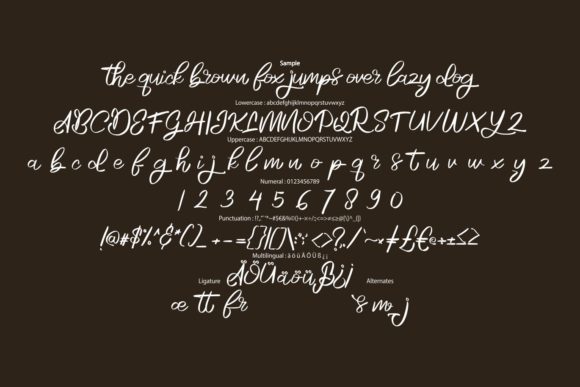 Sample
the quick brown fox jumps over lazy dog
Lowercase : abcdefghijklmnopqrstuvwxyz
ABCDEFGHIJKLMNOPQRSTUVWXYZ
Uppercase : ABCDEFGHIJKLMNOPQRSTUVWXYZ
a b c d e f g h i j k l m n o p q r s t u v w x y z
Numeral : 0123456789
1 2 3 4 5 6 7 8 9 0
Punctuation :
!@#$%^&*()_ +-={}[]|\:;'<>?,./`~×±£€±≤≥
Multilingual : ä ö ü Ä Ö Ü ß ¡ ¿
ÄÖÜäöüß¡¿
Ligature
Alternates
æ tt fr
s m j